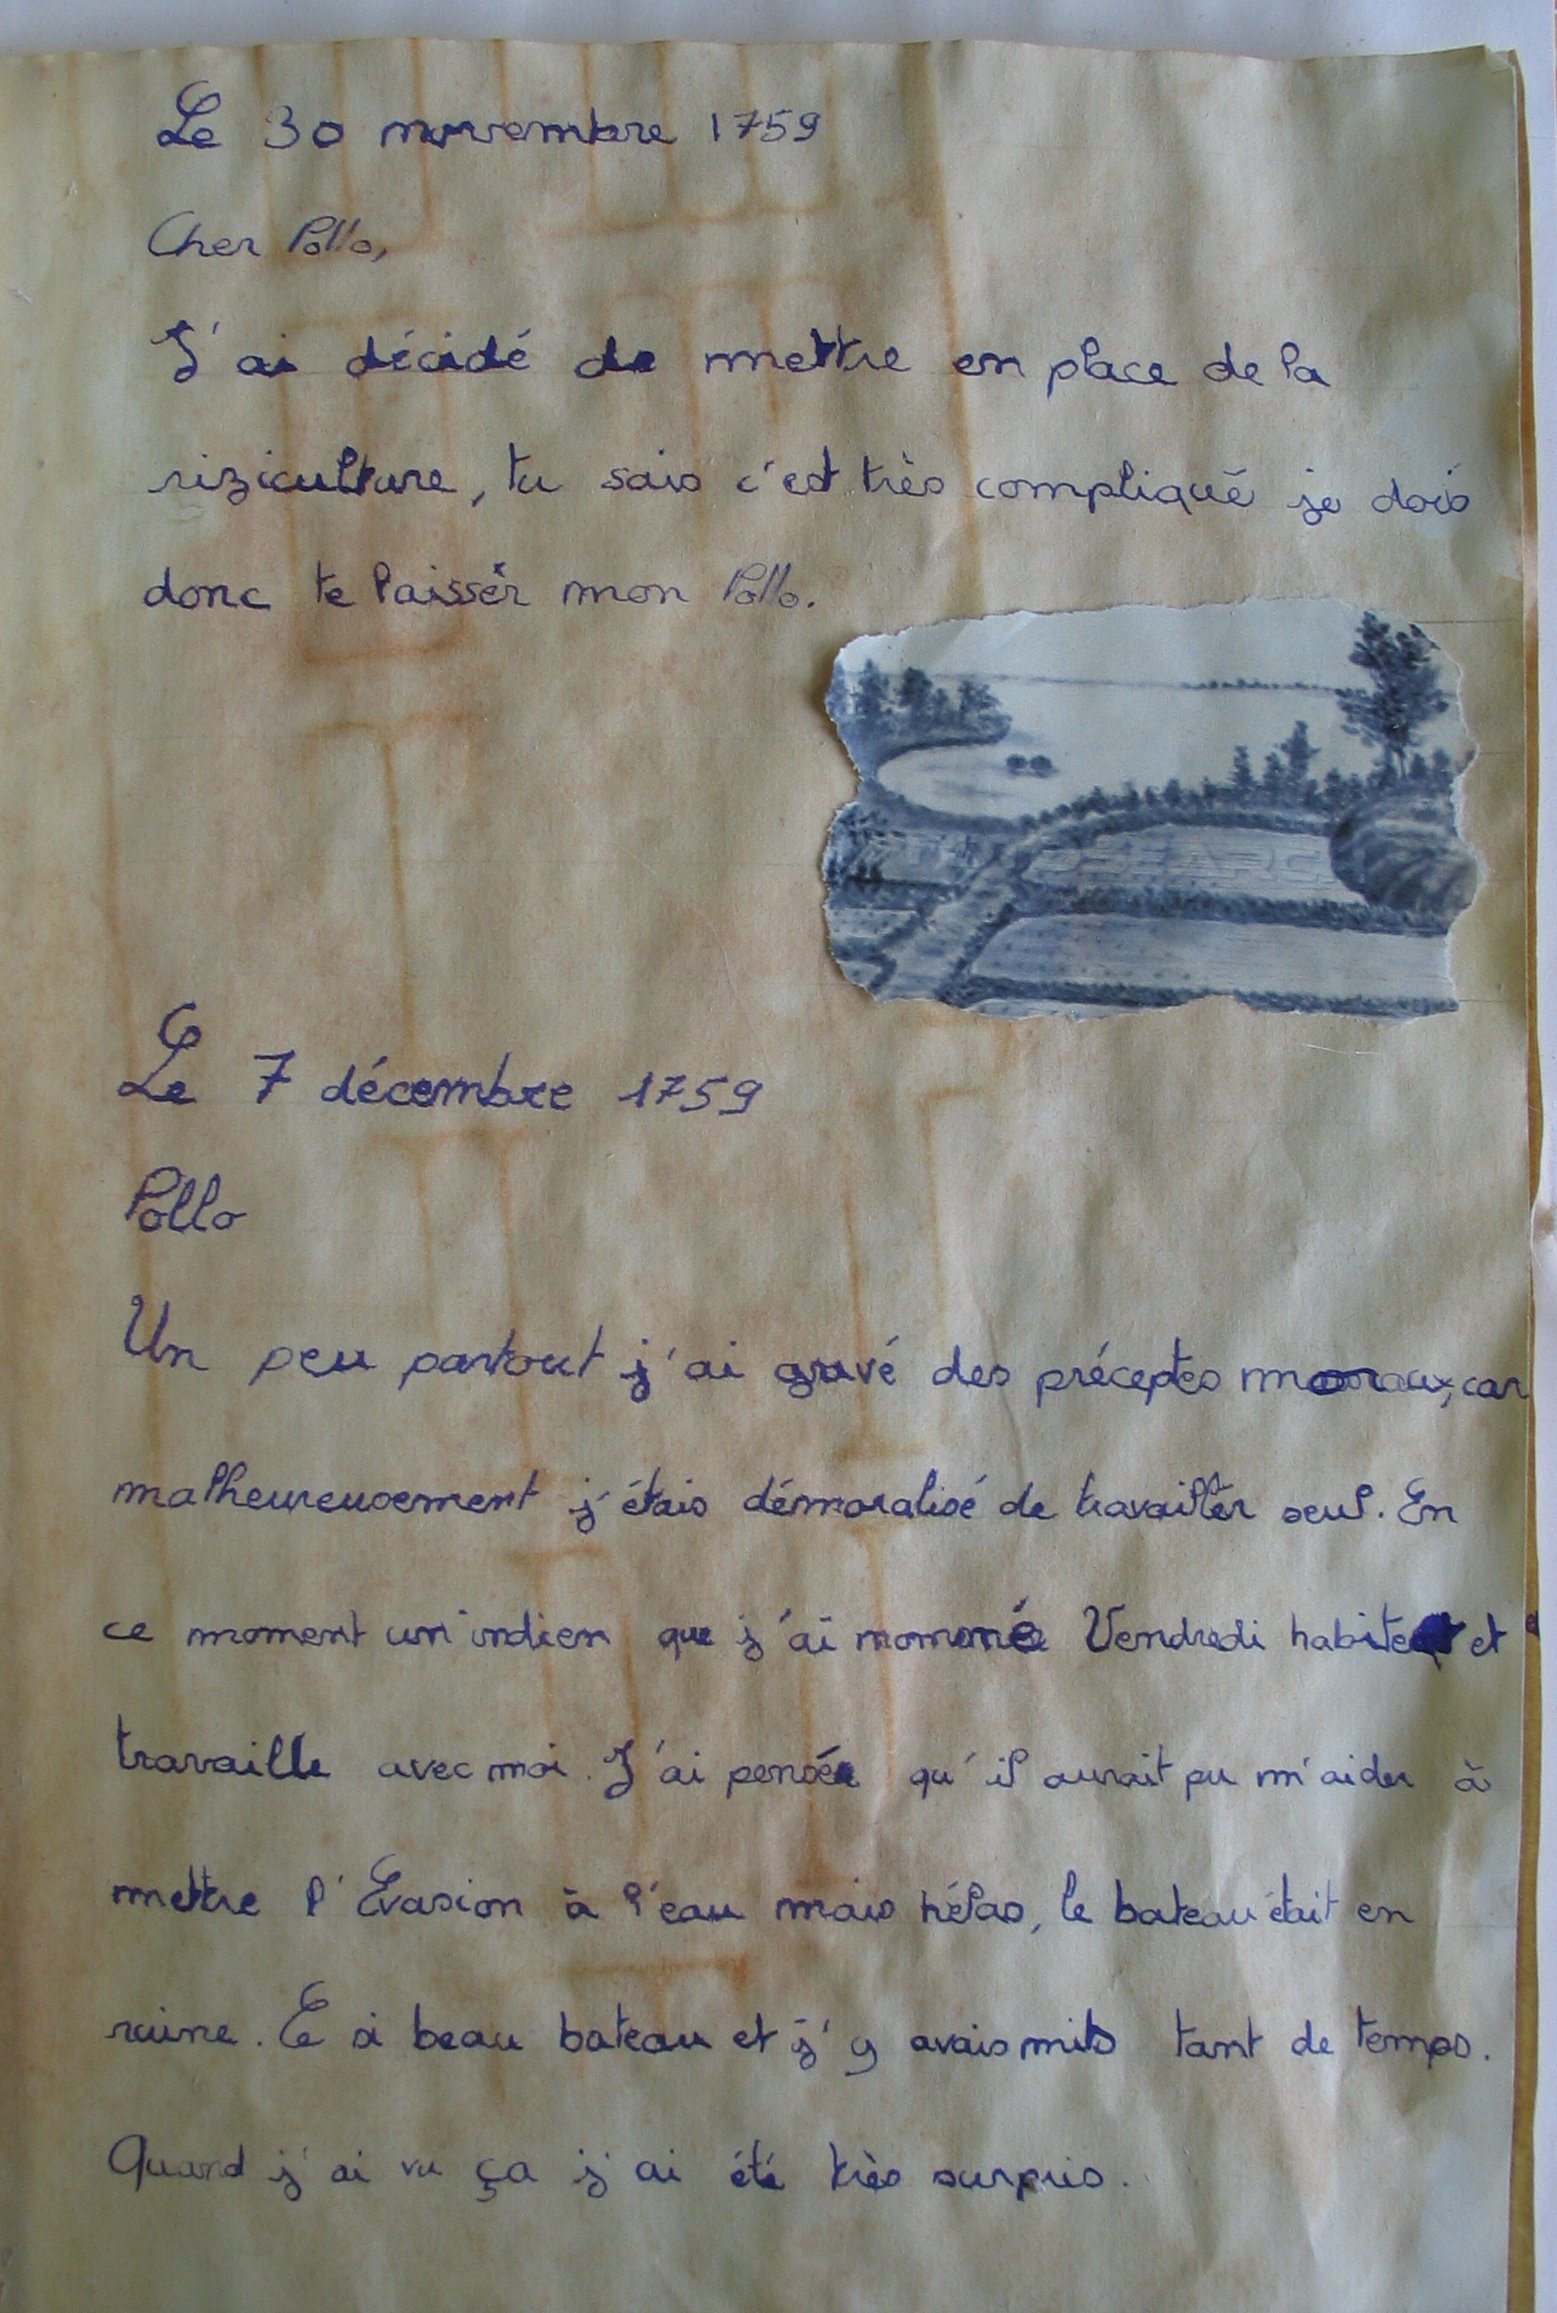 Le 30 novembre 1759
Cher Pollo,
J'ai décidé de mettre en place de la
riziculture, tu sais c'est très compliqué je dois
donc te laisser mon Pollo.
Le 7 décembre 1759
Pollo
Un peu partout j'ai gravé des préceptes moraux, car
malheureusement j'étais démoralisé de travailler seul. En
ce moment un indien que j'ai nommé Vendredi habite et
travaille avec moi. J'ai pensé qu'il aurait pu m'aider à
mettre l'Evasion à l'eau mais hélas, le bateau était en
ruine. Ce si beau bateau et j'y avais mits tant de temps.
Quand j'ai vu ça j'ai été très surpris.